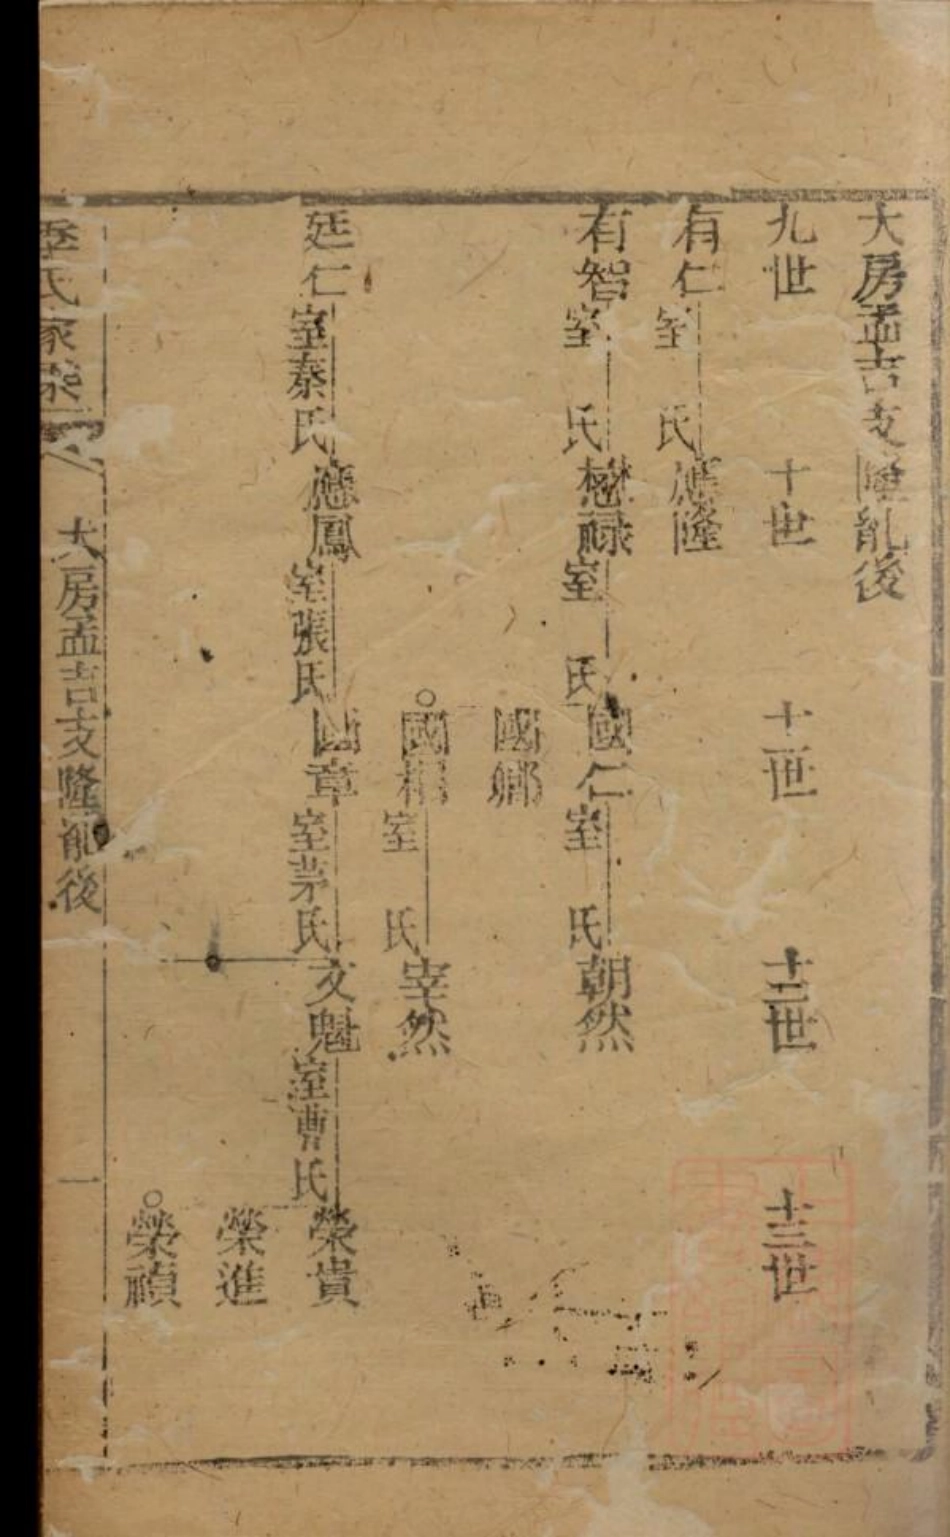 大房孟吉支隆亂後
九世 十世 十一世 十二世 十三世
有仁 室 氏 應隆
有智 室 氏 懋祿 室 氏 國仁 室 氏 朝然
國鄉
國相 室 氏 宰然
廷仁 室秦氏 應鳳 室張氏 國章 室茅氏 文魁 室曹氏 榮貴
榮進
榮禎
氏家 大房孟吉支隆亂後 一